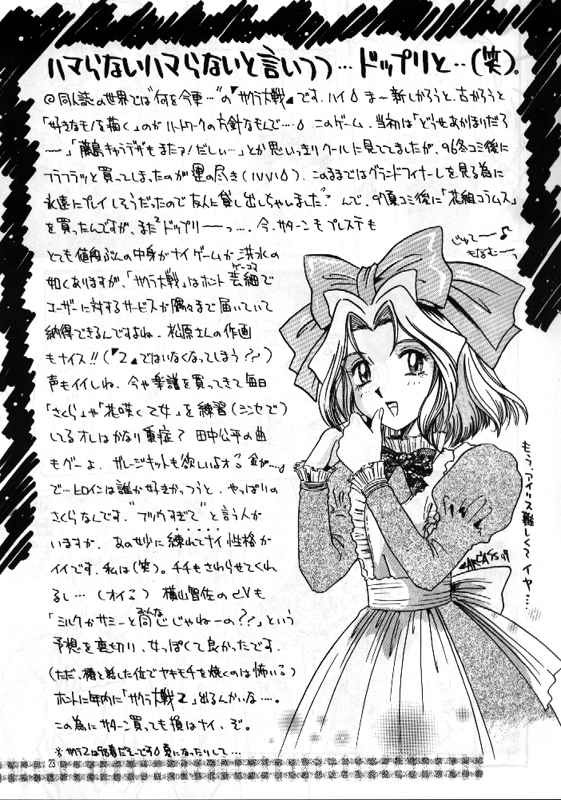 ハマらないハマらないと言いつつ…ドップリと‥(笑)。
◎同人誌の世界では"何を今更…"の『サクラ大戦』です。ハイ
ま〜新しかろうと、古かろうと
「好きなモノを描く」のが の方針なもんで…
このゲーム、当初は「どうせあかほりだろ
〜」「藤島キャラデザもまたァ!?だしい…」とか思いっきりクールに見てましたが、96冬コミ後に
フラフラッと買ってしまったのが運の尽き
このままではグランドフィナーレを見る為に
永遠にプレイしそうだったので友人に貸し出しちゃいました"
んで、97夏コミ後に「花組コラムス」
を買ったんですが、また²ドップリ〜〜っ…。今、サターンもプレステも
とても値段ぶんの中身がナイゲームが洪水の
如くありますが、「サクラ大戦」はホント芸細で
ユーザーに対するサービスが隅々まで届いていて
納得できるんですよね。松原さんの作画
もナイス!!(『2』ではいなくなってしまう??)
声もイイしね。今や楽譜を買ってきて毎日
「さくら」や「花咲く乙女」を練習(シンセで)
してるオレはかなり重症? 田中公平の曲
もグーよ。ガレージキットも欲しいよォ 金が…
で…ヒロインは誰が好きかっつうと、やっぱりの
さくらなんです。"ブリッ子すぎて"と言う人が
いますが、あの妙に練れてナイ性格が
イイです。私は(笑)。チチもさわらせてくれ
るし…(オイ) 横山智佐のCVも
「ミルクかサミーと同じじゃねーの??」という
予想を裏切り、女っぽくて良かったです。
(ただ、椿と話した位でヤキモチを焼くのは怖いる)
ホントに年内に「サクラ大戦2」出るんかいな…。
この為にサターン買っても損はナイ、ぞ。
じゅて〜♪
もなむ〜っ
もう、アイリス難しくてイヤ…
23